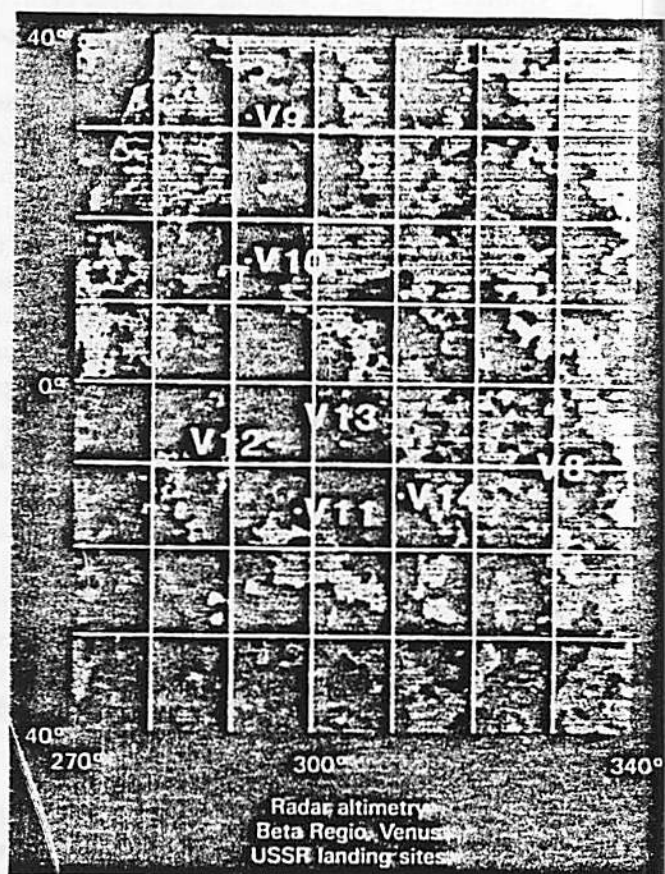 40°
·V9
·V10
0°
V13
V12·
V8
·V14
·V11
40°
270° 300° 340°
Radar altimetry
Beta Regio, Venus
USSR landing sites